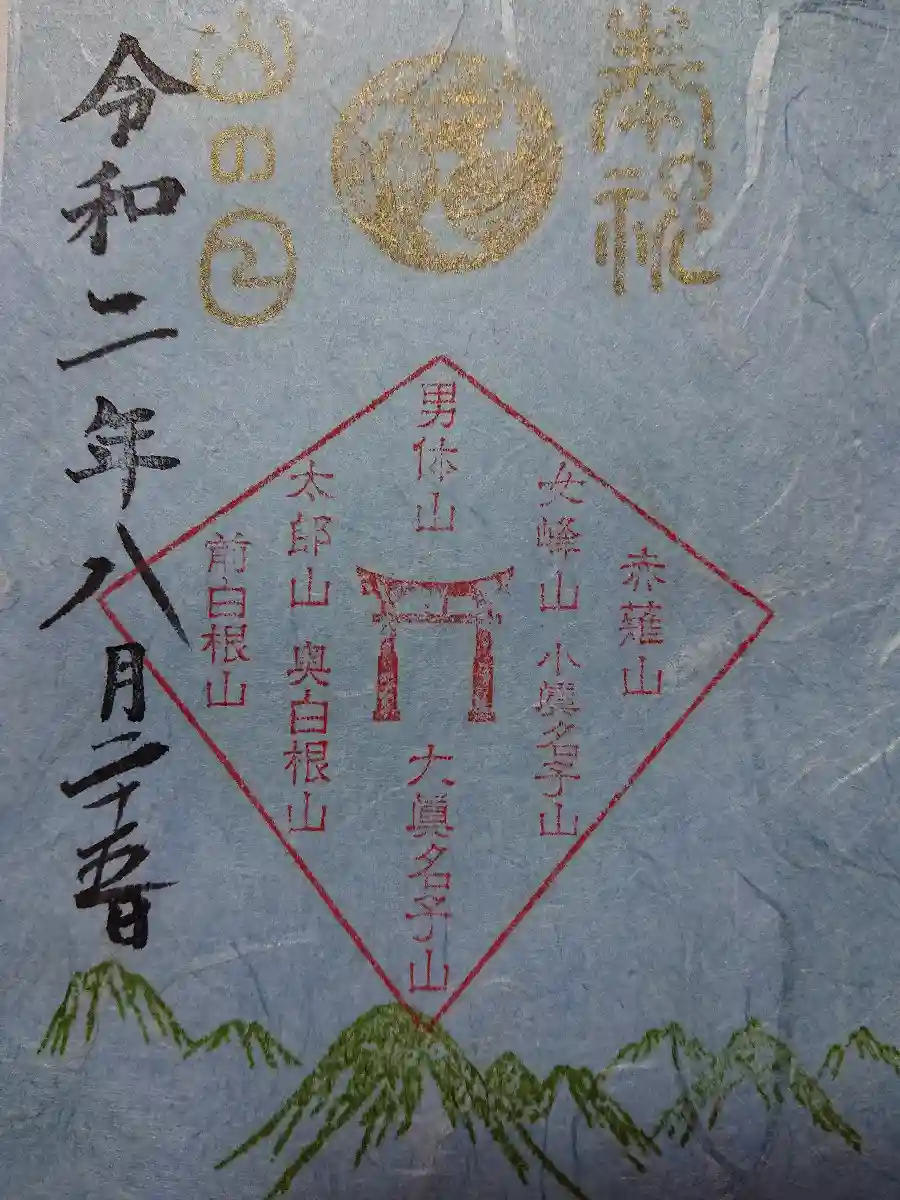 奉祝
山の日
赤薙山
女峰山 小眞名子山
男体山
大眞名子山
太郎山 奥白根山
前白根山
令和二年八月二十五日